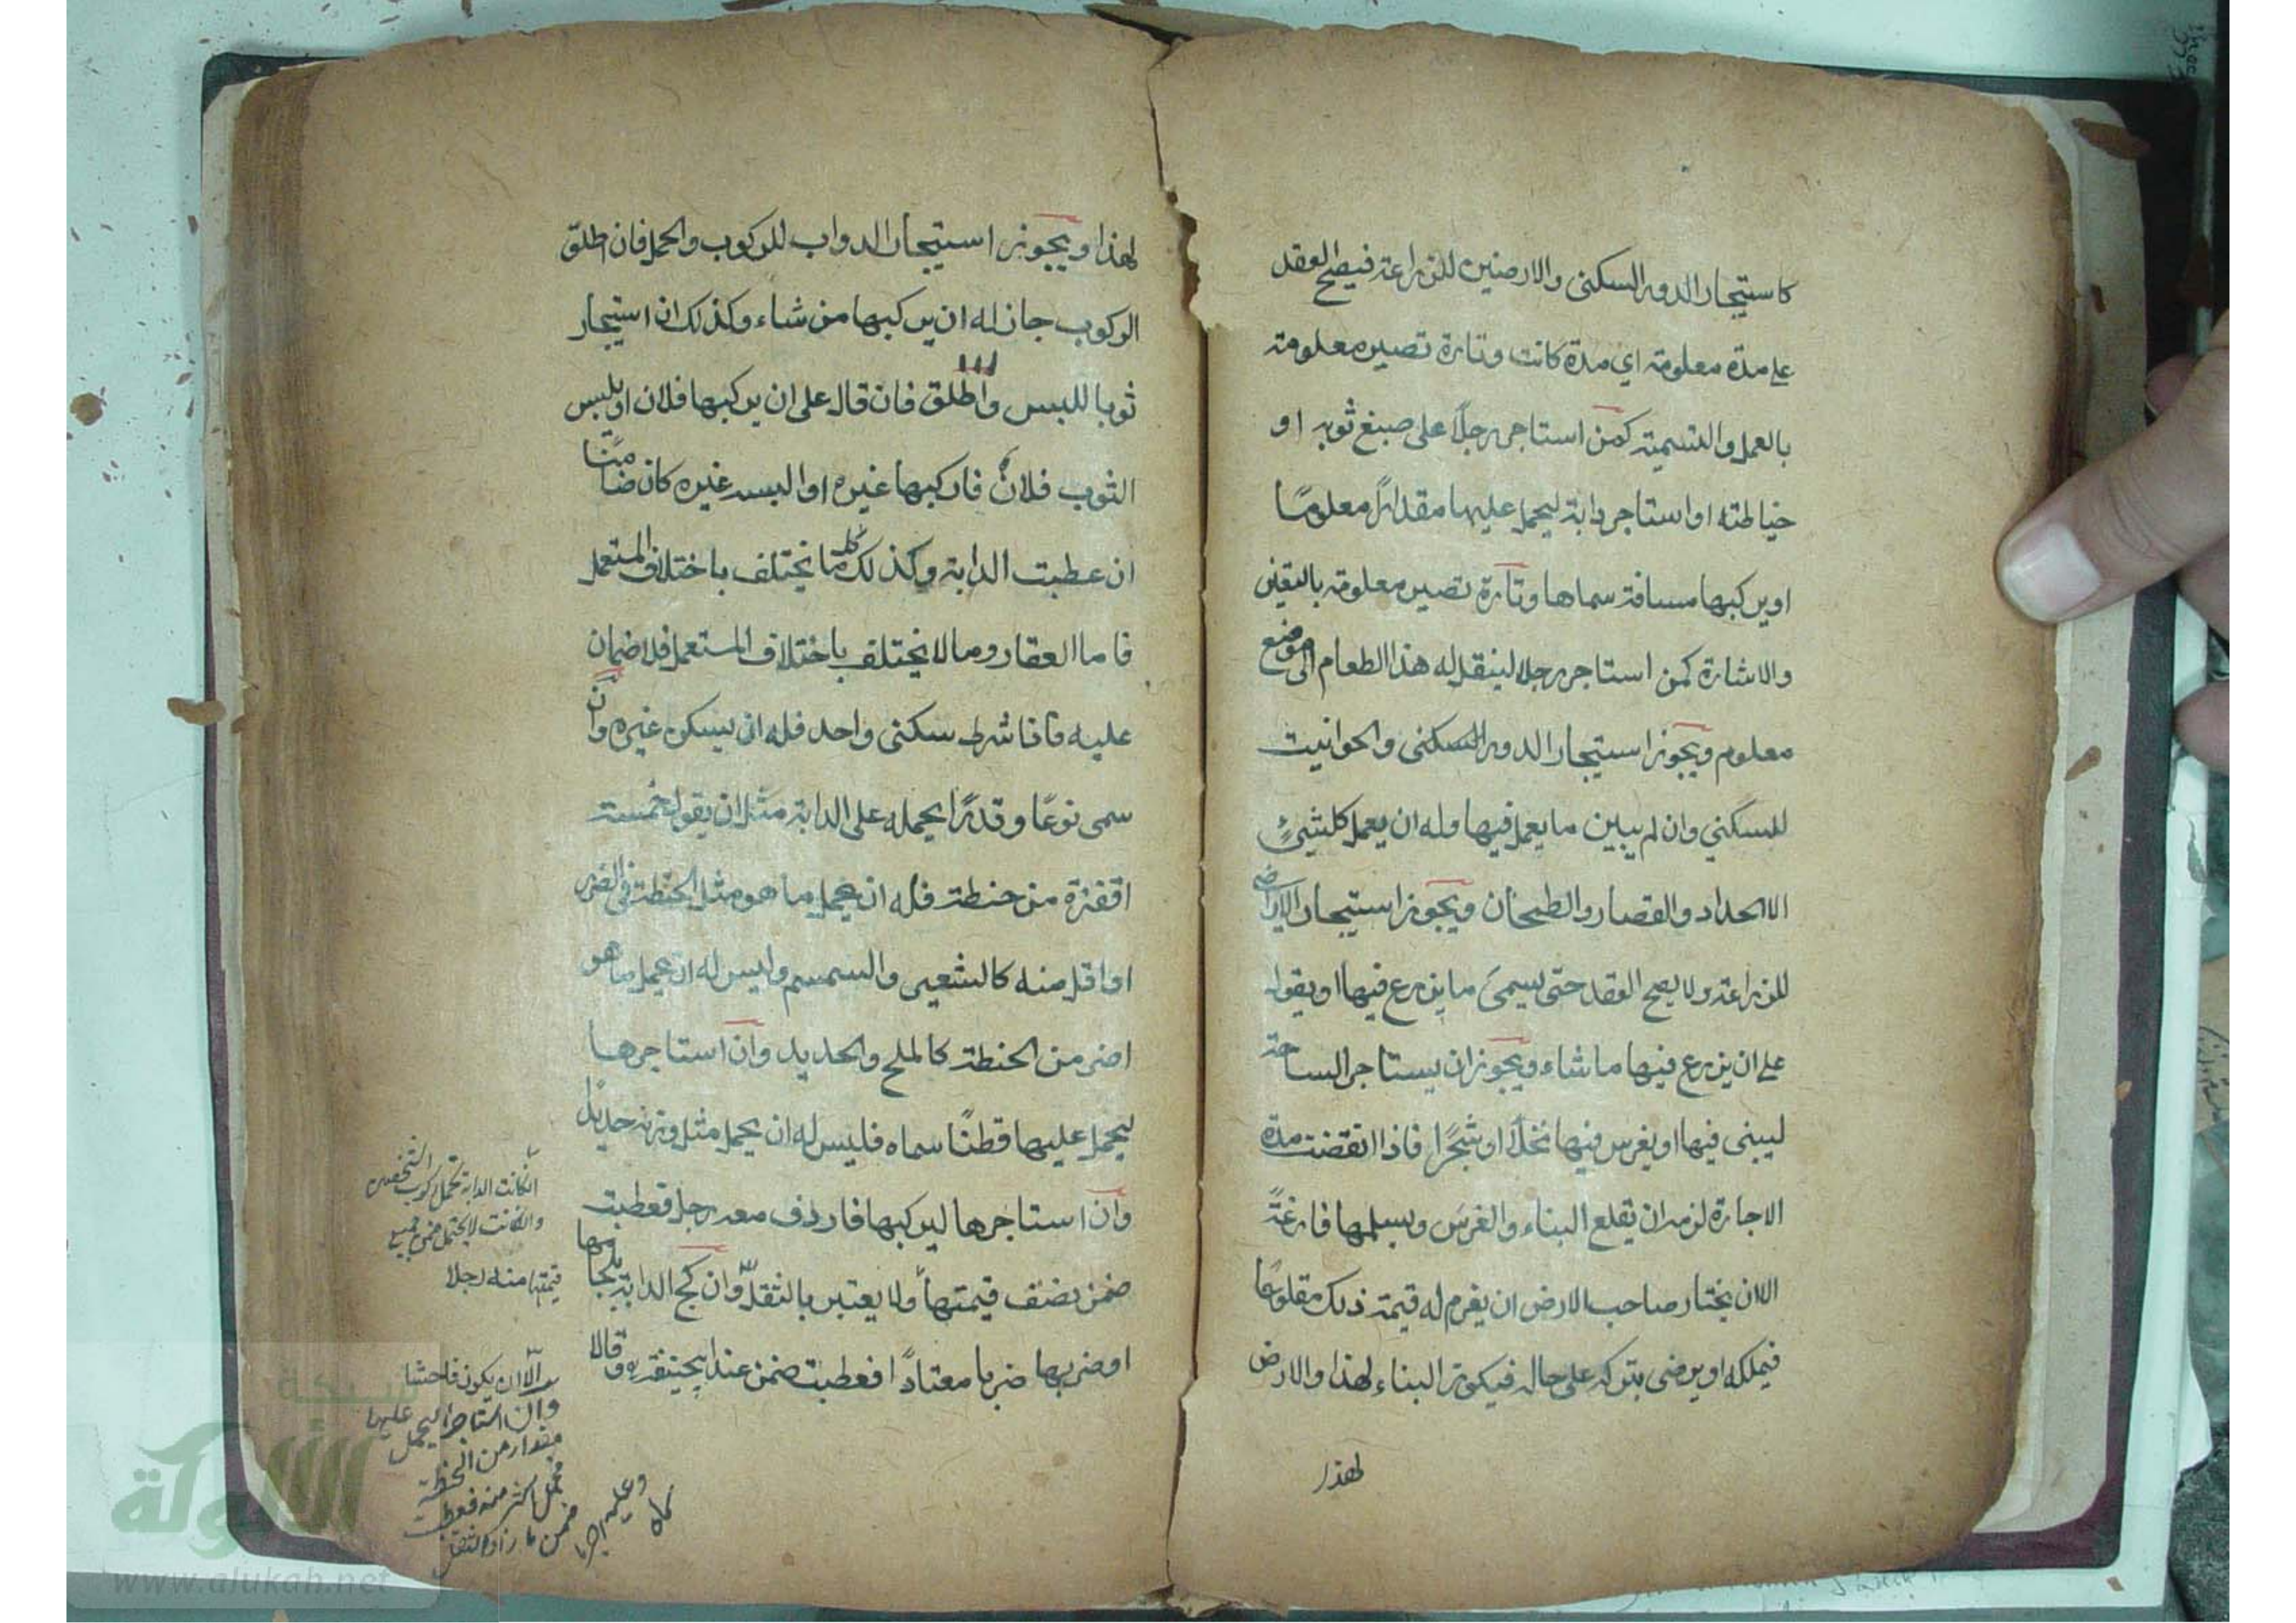 كاستيجار الدور للسكنى والارضين للزراعة فيصح العقد
على مدة معلومة اي مدة كانت وتارة تصير معلومة
بالعمل والتسمية كمن استاجر رجلًا على صبغ ثوبه او
خياطته او استاجر دابة ليحمل عليها مقدارًا معلومًا
او يركبها مسافة سماها وتارة تصير معلومة بالتعيين
والاشارة كمن استاجر رجلا لينقل له هذا الطعام الى موضع
معلوم ويجوز استيجار الدور للسكنى والحوانيت
للسكني وان لم يبين ما يعمل فيها وله ان يعمل كل شيئٍ
الا الحداد والقصار والطحان ويجوز استيجار الاراضي
للزراعة ولا يصح العقد حتّى يسمىَ ما يزرع فيها او يقول
على ان يزرع فيها ما شاء ويجوز ان يستاجر الساحة
ليبنى فيها او يغرس فيها نخلًا او شجرًا فاذا انقضت مدة
الاجارة لزمه ان يقلع البناء والغرسَ ويسلمها فارغةً
الا ان يختار صاحب الارض ان يغرم له قيمة ذلك مقلوعًا
فيملكه او يرضى بتركه على حاله فيكون البناء لهذا والارض
لهذا
لهذا ويجوز استيجار الدواب للركوب والحمل فان اطلق
الركوب جاز له ان يركبها من شاء وكذلك ان استيجار
ثوبا للبس واطلق فان قال على ان يركبها فلان او يلبس
الثوب فلانٌ فاركبها غيره او البسه غيره كان ضامنًا
ان عطبت الدابة وكذلك كل ما يختلف باختلاف المستعمل
فاما العقار وما لا يختلف باختلاف المستعمل فلا ضمان
عليه فاذا شرط سكنى واحد فله ان يسكن غيره وان
سمى نوعًا وقدرًا يحمله على الدابة مثل ان يقول خمسة
اقفزة من حنطة فله ان يحمل ما هو مثل الحنطة في الضرر
او اقل منه كالشعير والسمسم وليس له ان يحمل ما هو
اضر من الحنطة كالملح والحديد وان استاجرها
ليحمل عليها قطنًا سماه فليس له ان يحمل مثل وزنه حديدًا
وان استاجرها ليركبها فاردف معه رجلا فعطبت
ضمن نصف قيمتها ولا يعتبر بالثقل وان كبح الدابة بلجامها
او ضربها ضربا معتادًا فعطبت ضمن عند ابيحنيفة وقالا
انكانت الدابة تحمل ركوب الشخصين
وانكانت لا يحتمل ضمن جميع
قيمتها منه رجلا
الا ان يكون فاحشا
وان استاجرها ليحمل عليها
مقدار من الحنطة
فحمل اكثر منه فعطبت
ضمن ما زاد الثقل